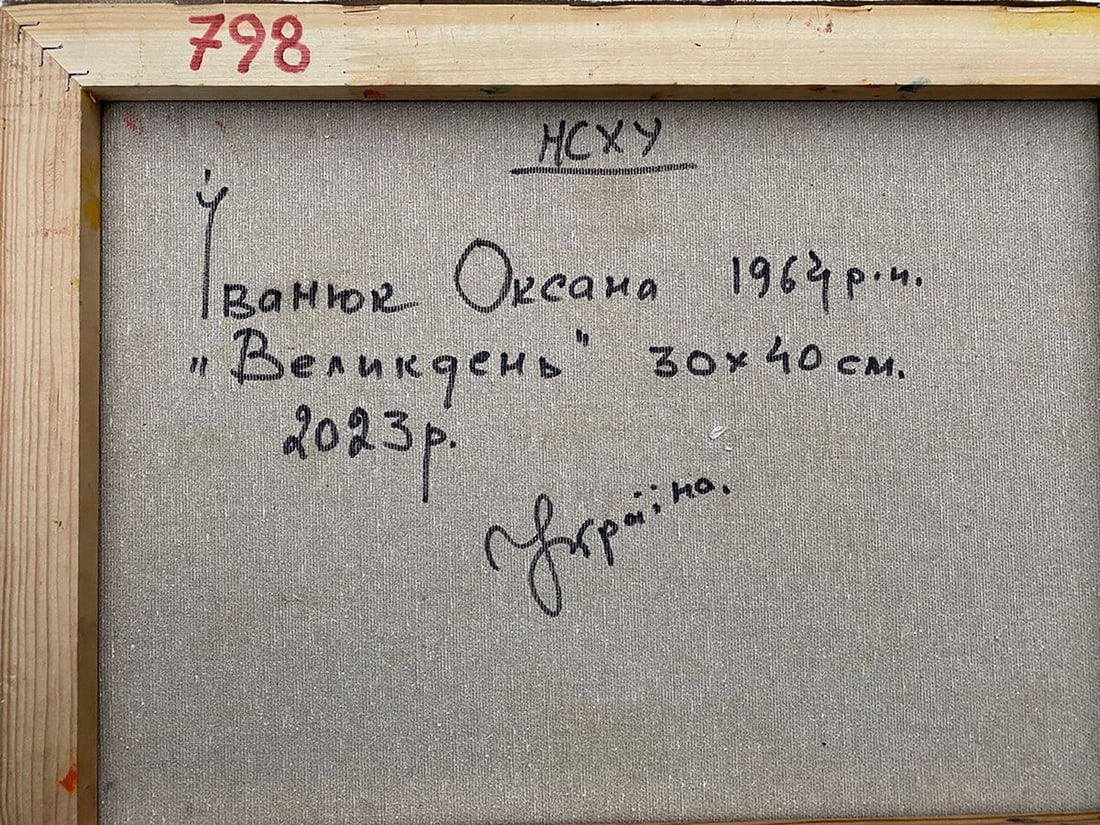 798
НСХУ
Іванюк Оксана 1964 р.н.
"Великдень" 30х40см.
2023р.
Україна.